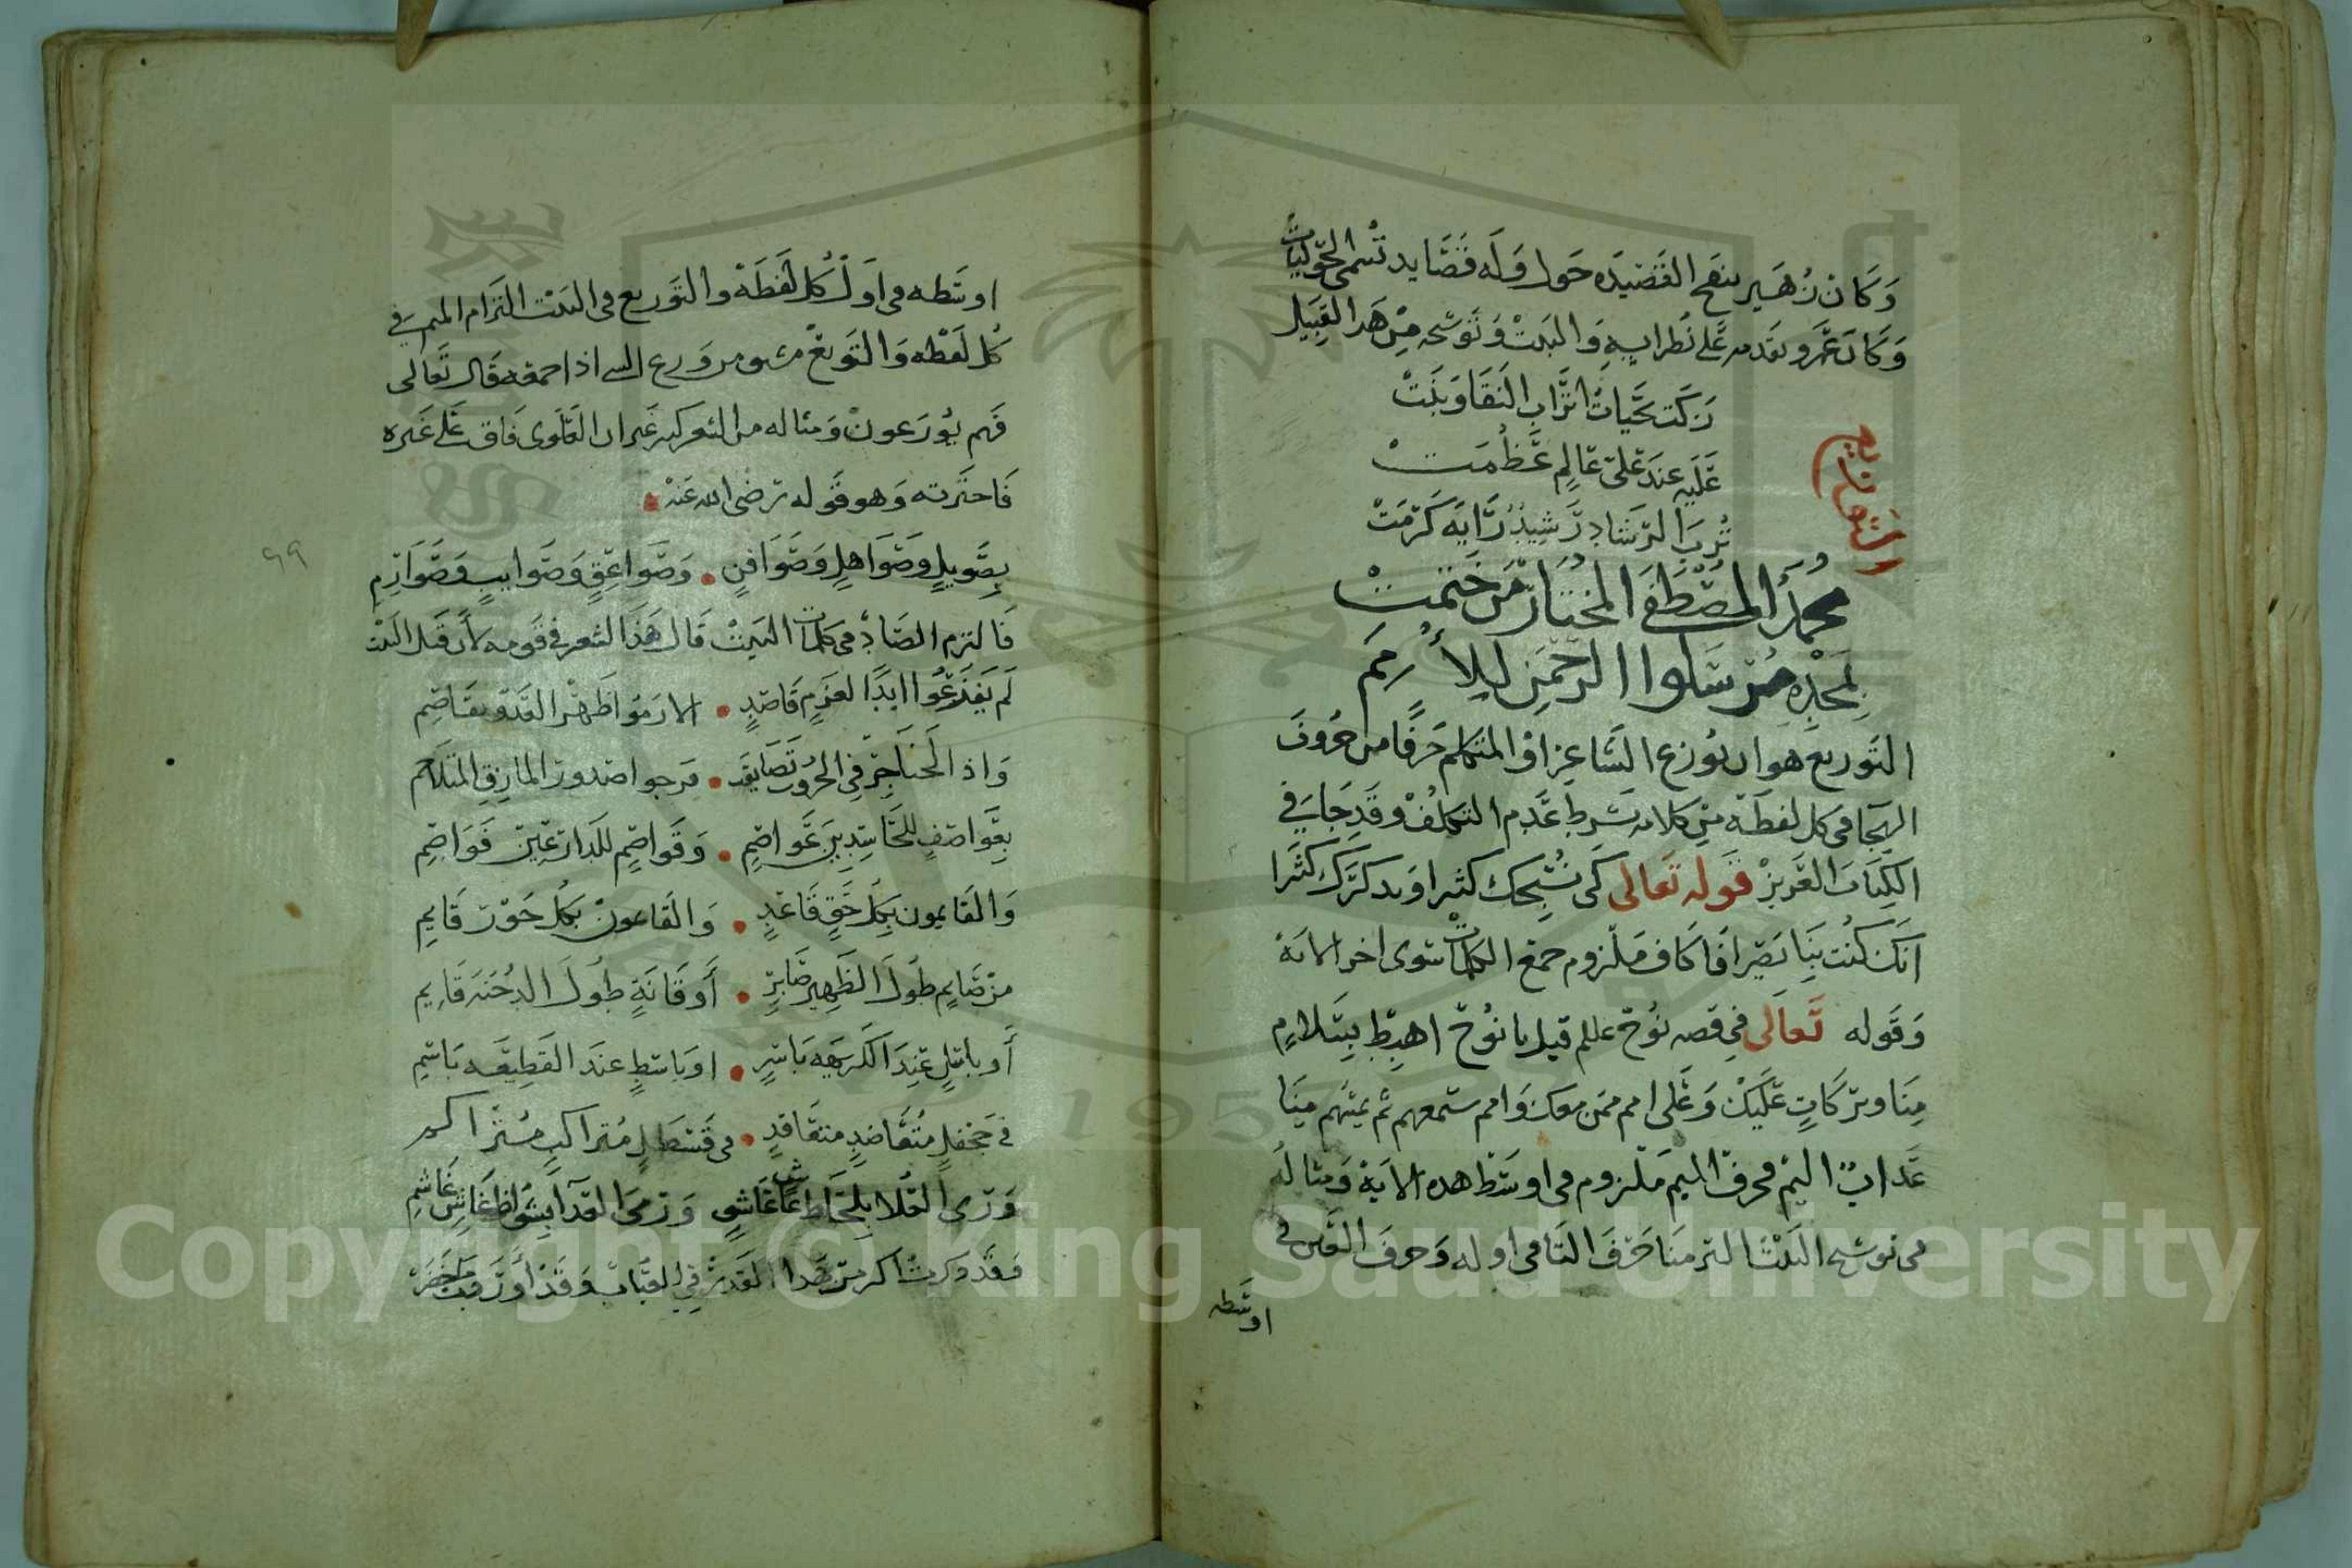 وكان زهير ينقح القصيده حولا وله قصايد تسمى الحوليات
وكان عمرو يقدمه على نظرايه والبيت وتوشيحه من هذا القبيل
زكت تحيات اتراب النقا وبنت
عليه عند على عالم عظمت
ترب الرشاد رشيد رايه كرمت
التوزيع
محمد المصطفى المختار من ختمت
بمجده مرسلوا الرحمن للامم
التوزيع هو ان يوزع الشاعر او المتكلم حرفا من حروف
الهجا فى كل لفظه من كلامه بشرط عدم التكلف وقد جا في
الكتاب العزيز قوله تعالى كى نسبحك كثيرا ونذكرك كثيرا
انك كنت بنا بصيرا فالكاف ملزوم جمع الكلمات سوى اخر الايه
وقوله تعالى في قصه نوح عللم قيل يا نوح اهبط بسلام
منا وبركات عليك وعلى امم ممن معك وامم سنمتعهم ثم يمسهم منا
عذاب اليم فحرف الميم ملزوم فى اوسط هذه الاية ومثاله
فى توشيح البيت التزمنا حرف التا فى اوله وحرف العين فى
اوسطه
اوسطه فى اول كل لفظه والتوزيع فى البيت التزام الميم في
كل لفظه والتوزيع مشتق من وزع الشى اذا جمعه قال تعالى
فهم يوزعون ومثاله من الشعر كثير غير ان العلوى فاق على غيره
فاخترته وهو قوله رضى الله عنه
٦٩
بصويل وصواهل وصوافن • وصواعق وصوايب وصوارم
فالتزم الصاد فى كلمات البيت قال هذا الشعر في قومه لان قبل البيت
لم يفزعوا ابدا لعزم قاصد • الا رموا ظهر العدو بقاصم
واذ الحناجر في الحروب تضايقت • فرجوا صدور المازق المتلاحم
بعواصف للحاسدين عواصم • وقواصم للدارعين قواصم
والقايمون بكل حق قاعد • والقاعدون بكل حور قايم
من صايم طول الظهير صابر • أو قانة طول الدجنه قايم
أو باسل عند الكريهه باسر • او باسط عند القطيعه باسم
في جحفل متعاضد متعاقد • فى قسطل متراكب متراكم
ورى العلا بلحاظ غاش غاشى ورمى العدا بشواظ غاش غاشم
وقد ذكرت اكثر من هذا القدر في العباب وقد أوردت ما حضر
Copyright © King Saud University
1957